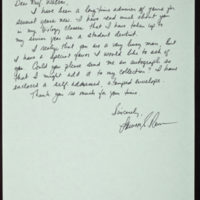 Dear Prof. Watson,
I have been a long-time admirer of yours for
several years now. I have read much about you
in my Biology classes that I have taken up to
my senior year as a student dentist.
I realize that you are a very busy man, but
I have a special favor I would like to ask of
you. Could you please send me an autograph so
that I might add it to my collection? I have
enclosed a self addressed, stamped envelope.
Thank you so much for your time
Sincerely,